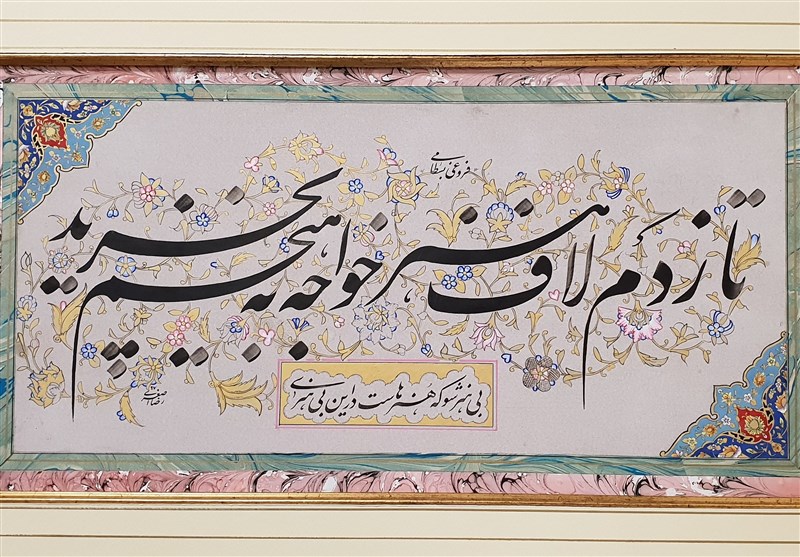 فروغی بسطامی
تا زدم لاف هنر خواجه به هیچم بخرید
بی هنر شو که هنرهاست در این بی هنری